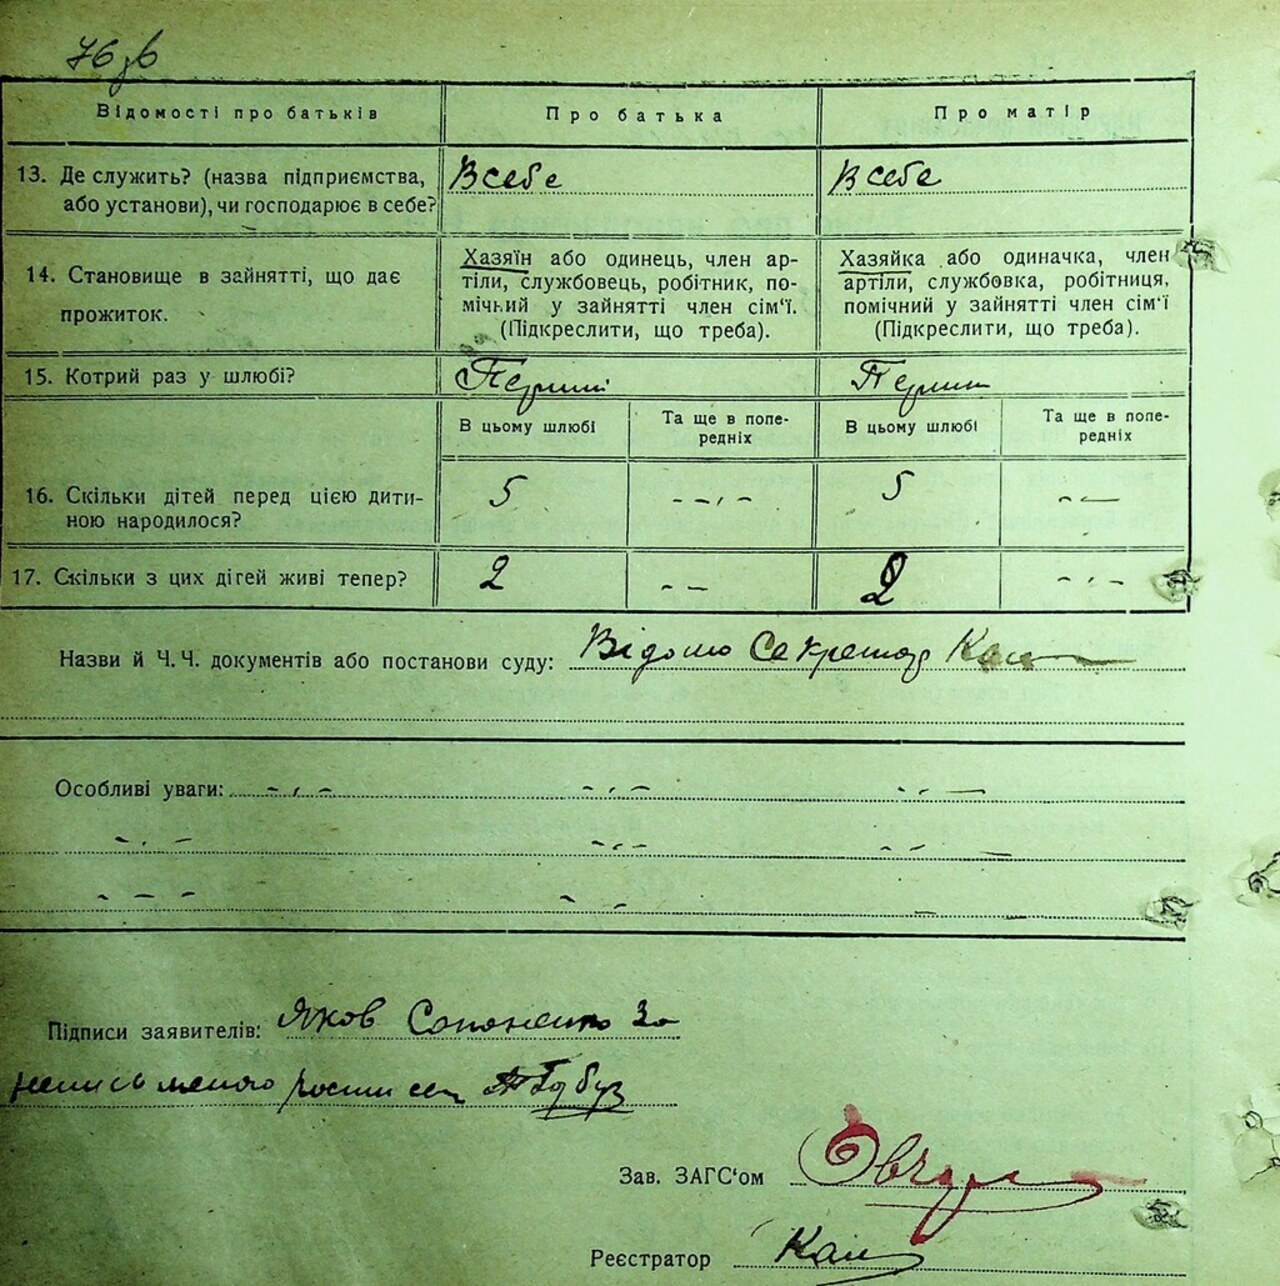 76 зв
Відомості про батьків Про батька Про матір
13. Де служить? (назва підприємства, або установи), чи господарює в себе? В себе В себе
14. Становище в зайнятті, що дає прожиток.
Хазяїн або одинець, член ар-
тіли, службовець, робітник, по-
мічний у зайнятті член сім‘ї.
(Підкреслити, що треба).
Хазяйка або одиначка, член
артіли, службовка, робітниця,
помічний у зайнятті член сім‘ї
(Підкреслити, що треба).
15. Котрий раз у шлюбі?
В цьому шлюбі Та ще в попе-
редніх В цьому шлюбі Та ще в попе-
редніх
16. Скільки дітей перед цією дити-
ною народилося? 5 5
17. Скільки з цих дітей живі тепер? 2 2
Назви й Ч. Ч. документів або постанови суду: Відомо Секретар
Особливі уваги:
Підписи заявителів: Яков Сапоненко За
неписьменого
Зав. ЗАГС‘ом
Реєстратор